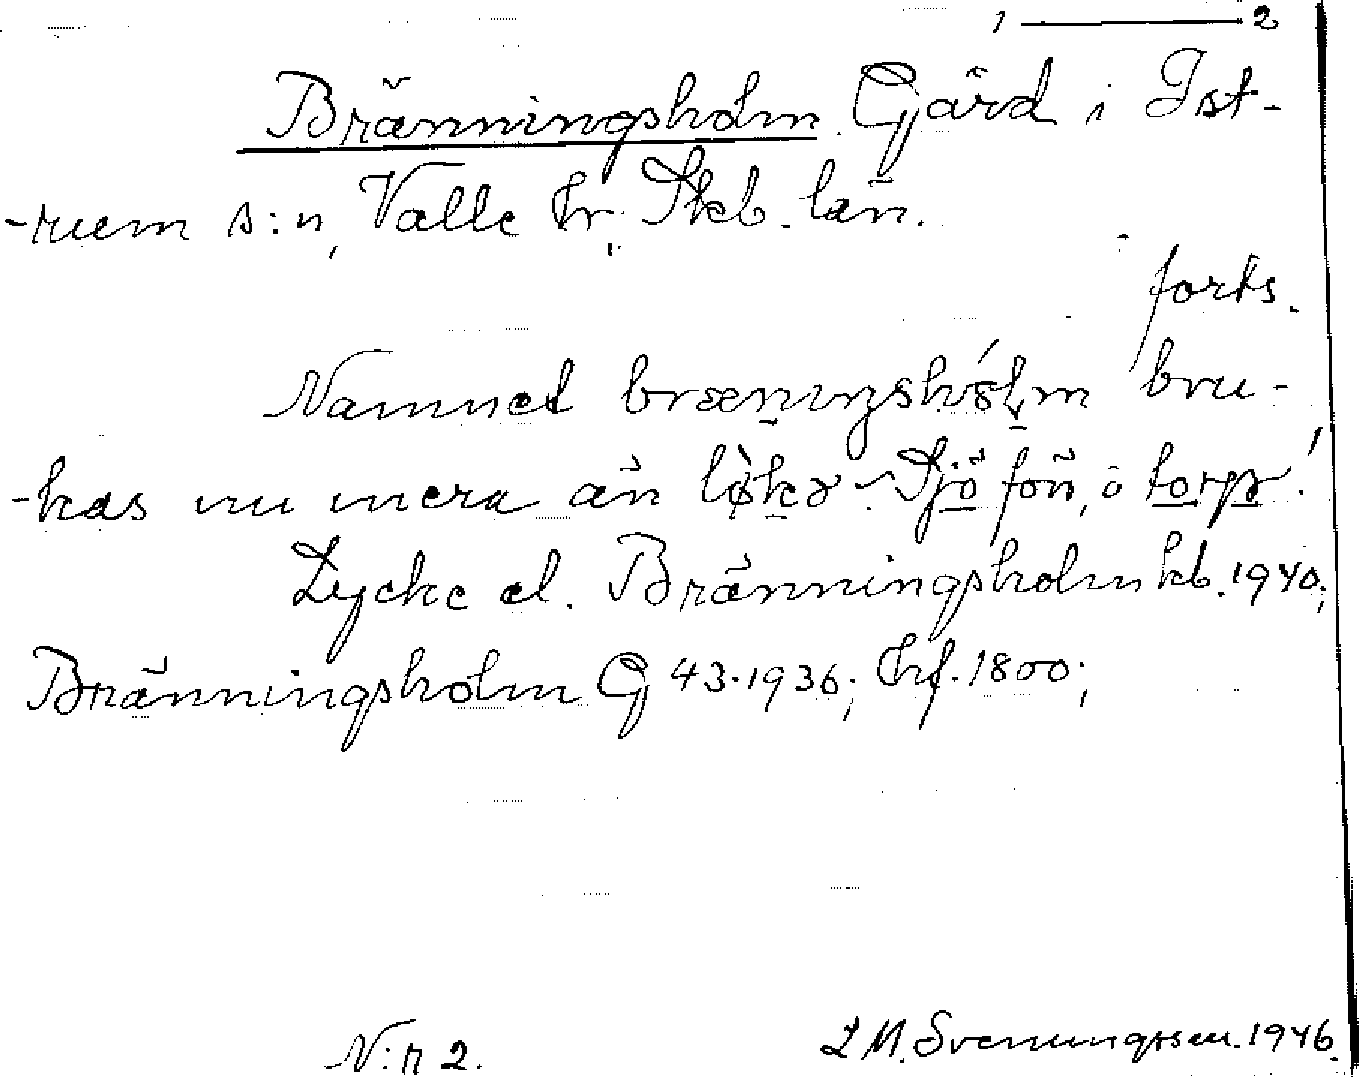 1 ——— 2
Bränningsholm Gård i Ist-
-rum s:n, Valle hr. Skb. län.
forts.
Namnet brænıŋshólm bru-
-kas nu mera än
Lycke el. Bränningsholm kb. 1940;
Bränningsholm G 43. 1936; hrf. 1800;
N:r 2.
L M. Svenungsson. 1946.